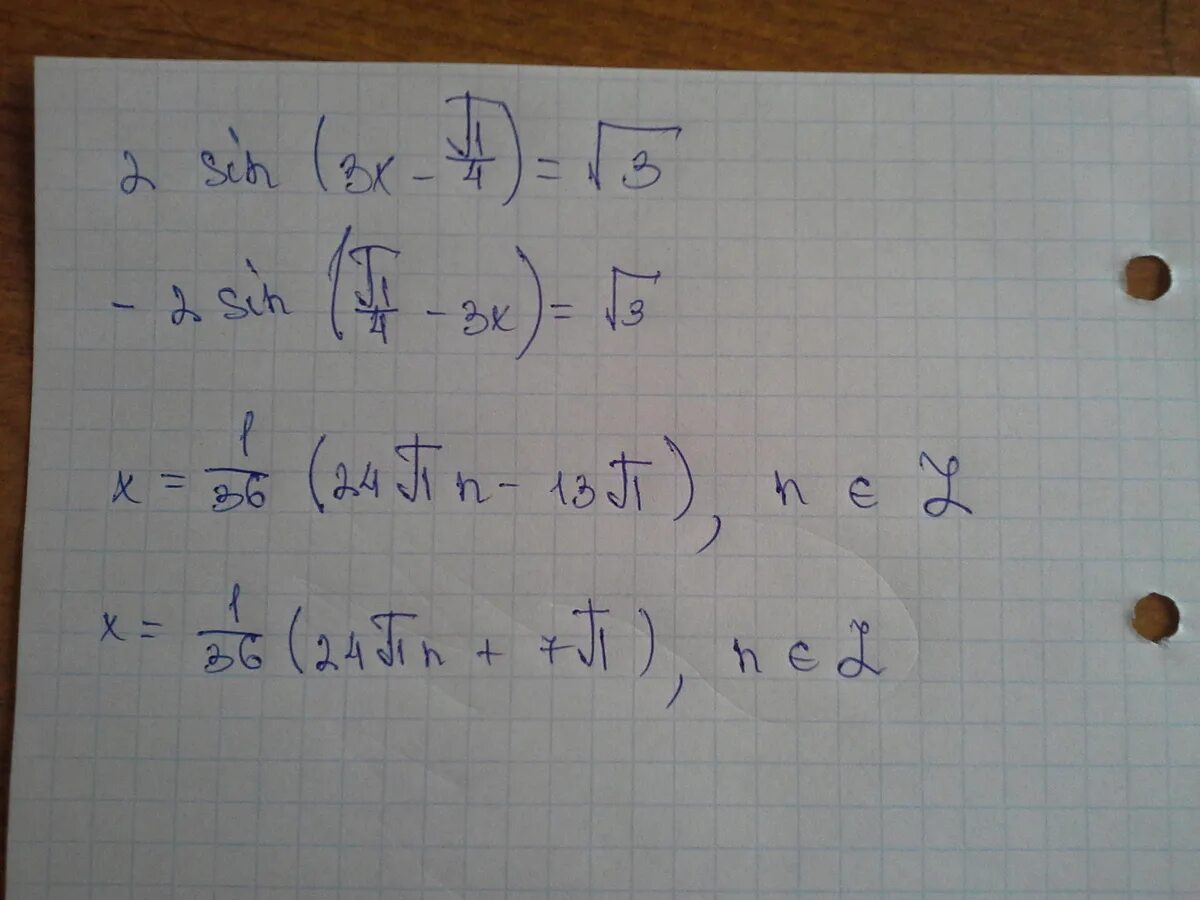 2 sin (3x - π/4) = √3
- 2 sin (π/4 - 3x) = √3
x = 1/36 (24πn - 13π), n ∈ Z
x = 1/36 (24πn + 7π), n ∈ Z